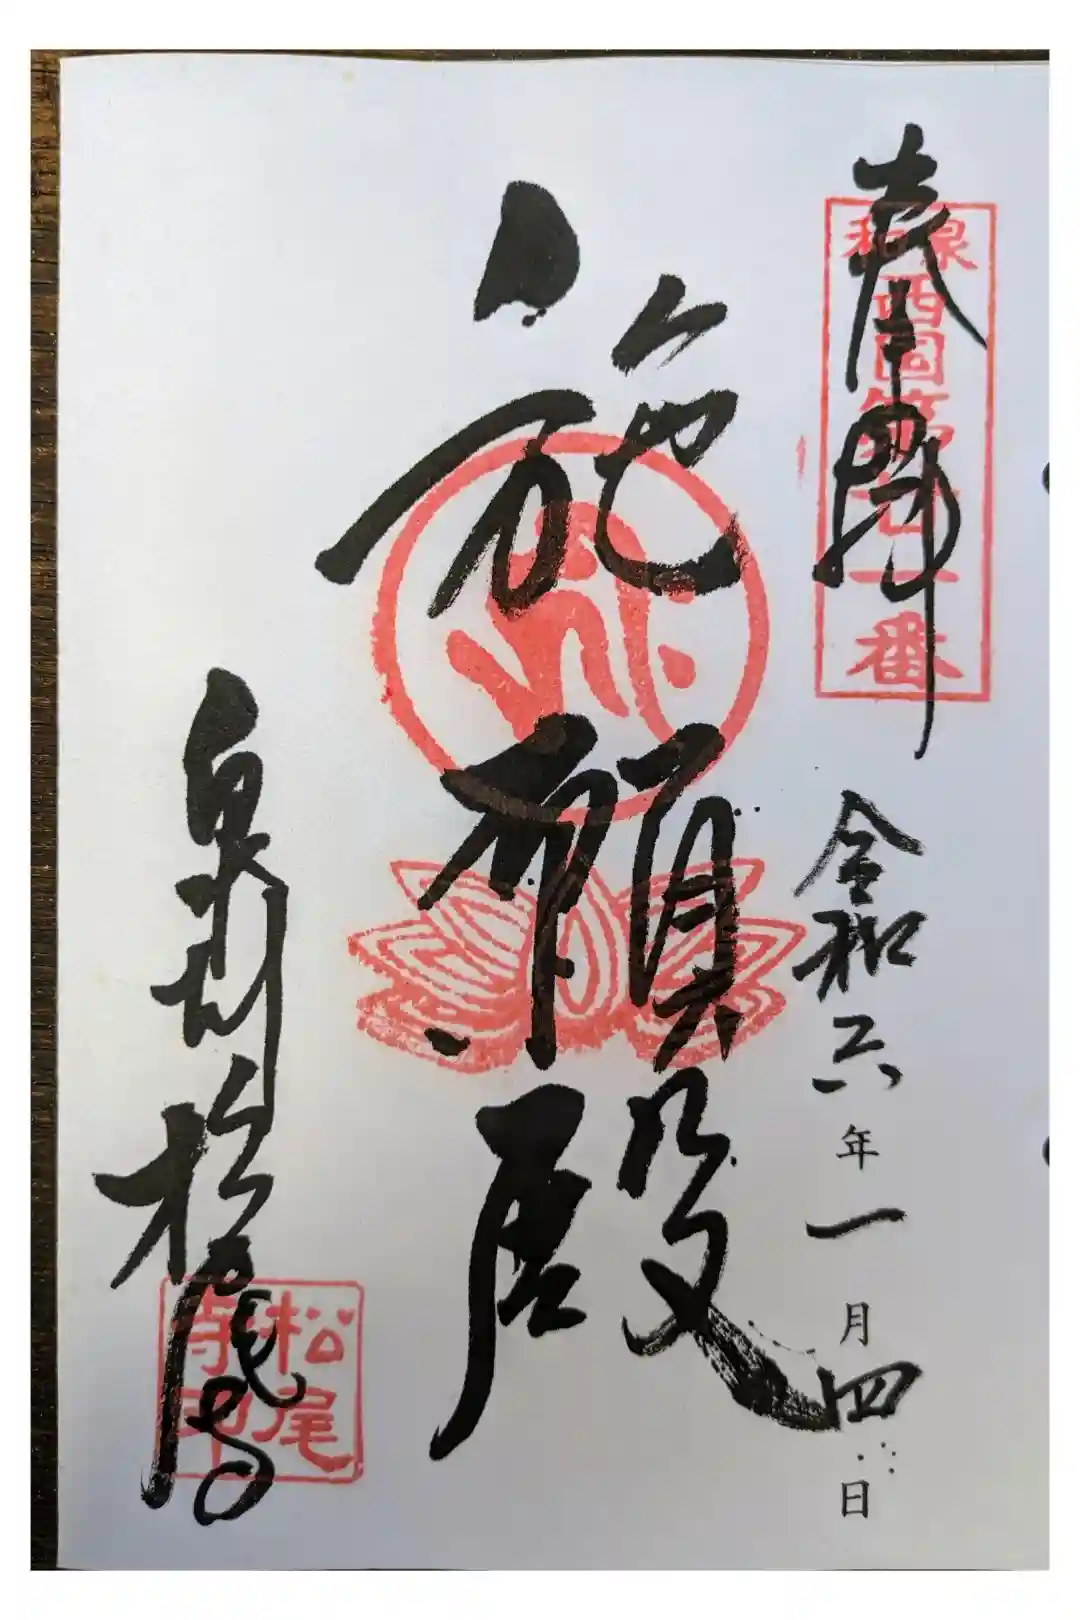 奉拝
和泉
西国第廿一番
令和六年一月四日
施願殿
泉州松尾寺
松尾
寺印